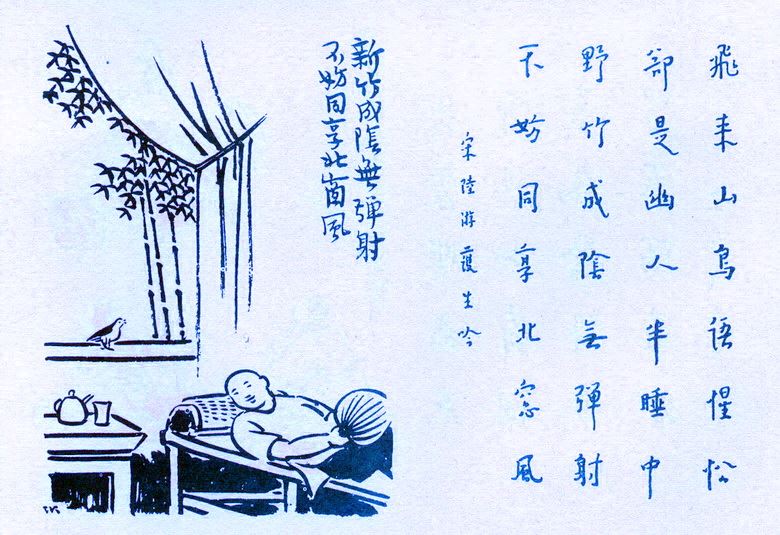 飛来山鳥語惺忪
卻是幽人半睡中
野竹成陰無彈射
不妨同享北窓風
宋陸游護生吟
新竹成陰無彈射
不妨同享北窗風